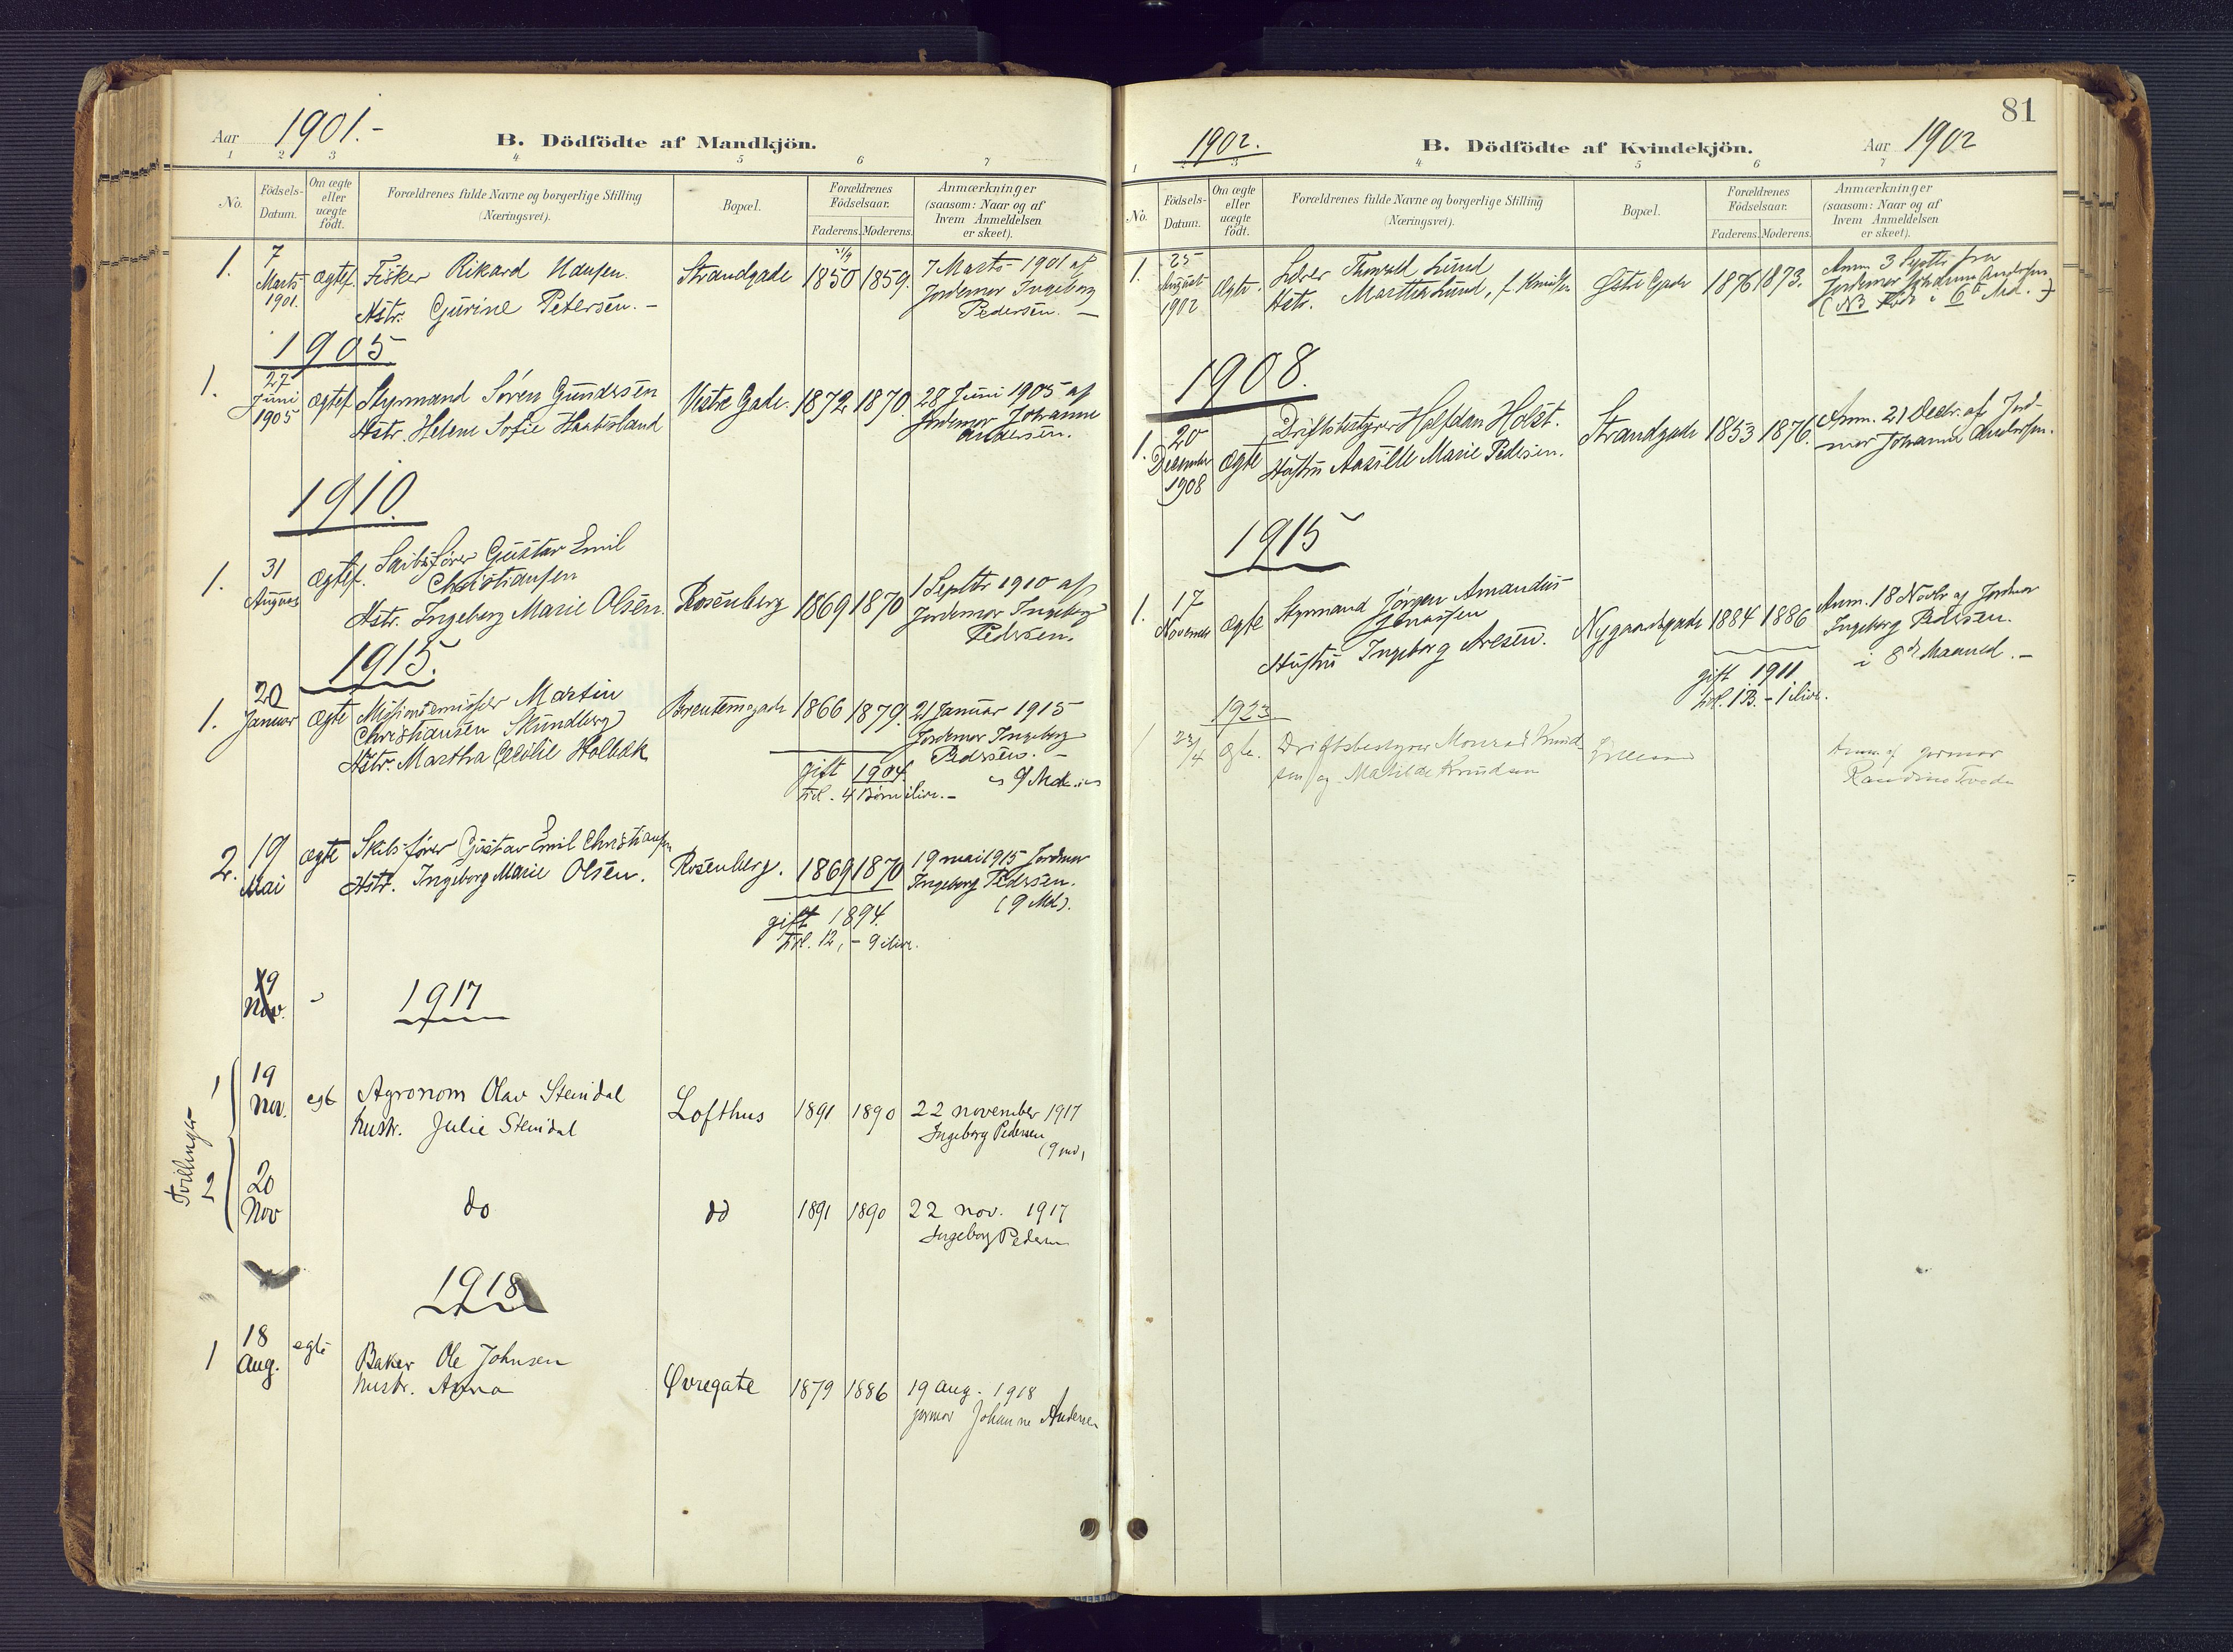 Aar 1901.-
B. Dödfödte af Mandkjön.
1 2 3 4 5 6 7
No.
Födsels-
Datum.
Om ægte
eller
uægte
födt.
Forældrenes fulde Navne og borgerlige Stilling
(Næringsvei).
Bopæl.
Forældrenes
Födselsaar.
Faderens. Moderens.
Anmærkninger
(saasom: Naar og af
hvem Anmeldelsen
er skeet).
1.
7
Marts
1901.
ægtef.
Fisker Rikard
Hstr. Gurine Petersen. -
Strandgade
21/9
1850
1859.
7 Marts 1901 af
Jordemor Ingeborg
Pedersen. -
1905
1.
27
Juni
1905
ægtef
Styrmand Sören Gundersen
Hstr. Helene Sofie
Vestre Gade.
1872
1870.
28 Juni 1905 af
Jordemor Johanne
Andersen.
1910.
1.
31
August
ægtef.
Skibsfører Gustav Emil
Christiansen
Hstr. Ingeborg Marie Olsen.
Rosenberg
1869
1870
1 Septbr 1910 af
Jordemor Ingeborg
Pedersen.
1915.
1.
20
Januar
ægte
Missionsemissær Martin
Christiansen
Hstr. Martha Cecilie Holbæk
1866
1879.
21 Januar 1915
Jordemor Ingeborg
Pedersen. -
gift 1904.
tidl. 4 Børn ilive. -
9 Md.
2.
19
Mai
ægte
Skibsfører Gustav Emil Christiansen
Hstr. Ingeborg Marie Olsen.
Rosenberg.
1869
1870
19 mai 1915 Jordmor
Ingeborg Pedersen.
(9 Md).
gift 1894.
tidl. 12, - 9 ilive.
19
Nov.
1917
Tvillinger
1
19
nov.
egt
Agronom Olav Steindal
hustr. Julie Steindal
Lofthus
1891
1890
22 november 1917
Ingeborg Pedersen
(9 md)
2
20
Nov
do
do
1891
1890
22 nov. 1917
Ingeborg Pedersen
1918
1
18
Aug.
egte
Baker Ole Johnsen
hustr. Anna
Øvregate
1879
1886
19 aug. 1918
jormor Johanne Andersen
81
1902.
B. Dödfödte af Kvindekjön.
Aar 1902
1 3 4 5 6 7
No.
Födsels-
Datum.
Om ægte
eller
uægte
födt.
Forældrenes fulde Navne og borgerlige Stilling
(Næringsvei).
Bopæl.
Forældrenes
Födselsaar.
Faderens. Moderens.
Anmærkninger
(saasom: Naar og af
hvem Anmeldelsen
er skeet).
1.
25
August
1902
Ægte.
Thorvald Lund
Hstr. Martha Lund, f. Knudsen
Østre Gade
1876
1873.
Anm. 3 Septbr fra
Jordemor Johanne Andersen
1908.
1.
20
December
1908
ægte
Driftsbestyrer Halfdan Holst.
Hustru Marie Pedersen.
Strandgade
1853
1876.
Anm. 21 Decbr. af Jord-
mor Johanne Andersen.
1915
1.
17
November
ægte
Styrmand Jörgen Amandus
Jonassen
Hustru Ingeborg Aresen.
Nygaardsgade
1884
1886
Anm. 18 Novbr af Jordmor
Ingeborg Pedersen.
i 8de Maaned. -
gift 1911
tidl. 1 B. - 1 ilive.
1923
1
23/4
Driftsbestyrer Monrad Knud
sen og Matilde Knudsen
Anm. af jormor